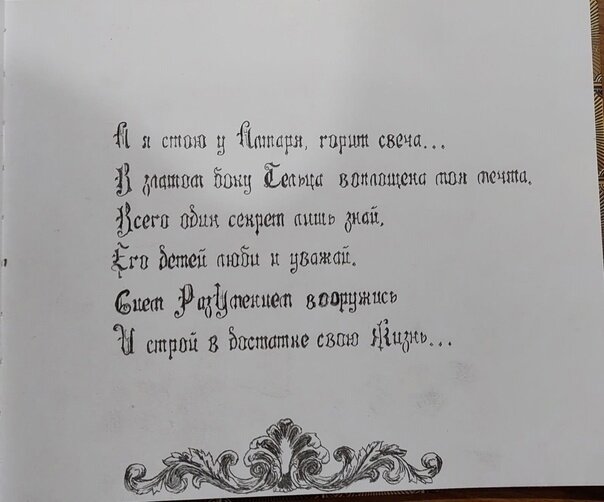 А я стою у Алтаря, горит свеча...
В златом боку Тельца воплощена моя мечта.
Всего один секрет лишь знай,
Его детей люби и уважай.
Сием РазУмением вооружись
И строй в достатке свою Жизнь...